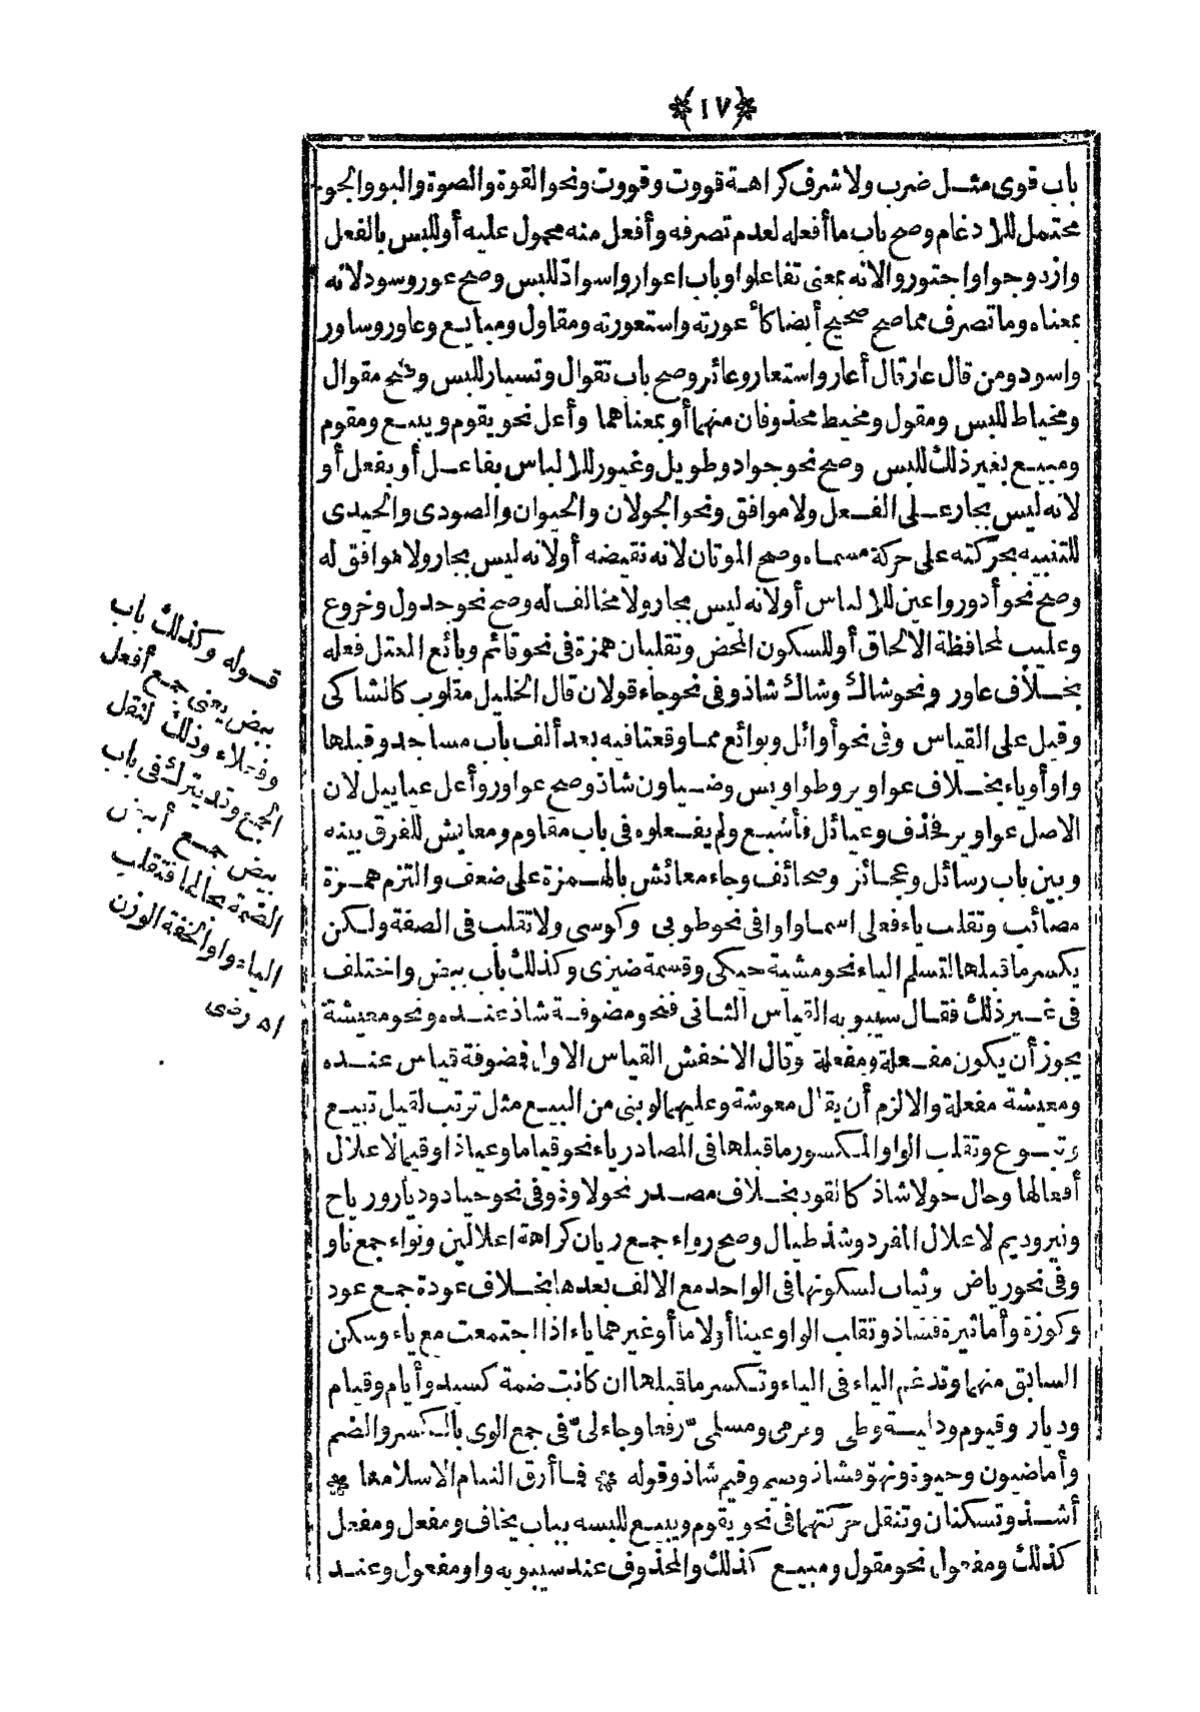 ١٧
باب قوى مثل ضرب ولا شرف كراهة قووت وقووت ونحو القوة والصوة والبو والجو
محتمل للادغام وصح باب ما أفعله لعدم تصرفه وأفعل منه محمول عليه أو للبس بالفعل
وازدوجوا واجتوروا لانه بمعنى تفاعلوا وباب اعوار واسواد للبس وصح عور وسود لانه
بمعناه وما تصرف مما صح صحيح أيضا كأعورته واستعورته ومقاول ومبايع وعاور وساور
واسود ومن قال عار قال أعار واستعار وعائر وصح باب تقوال وتسيار للبس وصح مقوال
ومخياط للبس ومقول ومخيط محذوفان منهما أو بمعناهما وأعل نحو يقوم ويبيع ومقوم
ومبيع بغير ذلك للبس وصح نحو جواد وطويل وغيور للالباس بفاعل أو بفعل أو
لانه ليس بجار على الفعل ولا موافق ونحو الجولان والحيوان والصورى والحيدى
للتنبيه بحركته على حركة مسماه وصح الموتان لانه نقيضه أو لانه ليس بجار ولا موافق له
وصح نحو أدور واعين للالباس أو لانه ليس بجار ولا مخالف له وصح نحو جدول وخروع
وعليب لمحافظة الالحاق أو للسكون المحض وتقلبان همزة فى نحو قائم وبائع المعتل فعله
بخلاف عاور ونحو شاك وشاك شاذ وفى نحو جاء قولان قال الخليل مقلوب كالشاكى
وقيل على القياس وفى نحو أوائل وبوائع مما وقعتا فيه بعد ألف باب مساجد وقبلها
واو أو ياء بخلاف عواوير وطواويس وضياون شاذ وصح عواور وأعل عيابيل لان
الاصل عواوير فحذف وعيائل فأشبع ولم يفعلوه فى باب مقاوم ومعايش للفرق بينه
وبين باب رسائل وعجائز وصحائف وجاء معائش بالهمزة على ضعف والتزم همزة
مصائب وتقلب ياء فعلى اسما واوا فى نحو طوبى وكوسى ولا تقلب فى الصفة ولكن
يكسر ما قبلها لتسلم الياء نحو مشية حيكى وقسمة ضيزى وكذلك باب بيض واختلف
فى غير ذلك فقال سيبويه القياس الثانى فنحو مضوفة شاذ عنده ونحو معيشة
يجوز أن يكون مفعلة ومفعلة وقال الاخفش القياس الاول فضوفة قياس عنده
ومعيشة مفعلة والا لزم أن يقال معوشة وعليهما لو بنى من البيع مثل ترتب لقيل تبيع
وتبوع وتقلب الواو المكسور ما قبلها فى المصادر ياء نحو قياما وعياذا وقيما لاعلال
أفعالها وحال حولا شاذ كالقود بخلاف مصدر نحو لاوذ وفى نحو جياد وديار ورياح
وتير وديم لاعلال المفرد وشذ طيال وصح رواء جمع ريان كراهة اعلالين ونواء جمع ناو
وفى نحو رياض وثياب لسكونها فى الواحد مع الالف بعدها بخلاف عودة جمع عود
وكوزة وأما ثيرة فشاذ وتقلب الواو عينا أو لاما أو غيرهما ياء اذا اجتمعت مع ياء وسكن
السابق منهما وتدغم الياء فى الياء وتكسر ما قبلها ان كانت ضمة كسيد وأيام وقيام
وديار وقيوم ودلية وطى ومرمى ومسلمىّ رفعا وجاء لىّ فى جمع الوى بالكسر والضم
وأما ضيون وحيوة ونهوّ فشاذ وصيم وقيم شاذ وقوله * فما أرق النيام الا سلامها *
أشذ وتسكنان وتنقل حركتهما فى نحو يقوم ويبيع للبسه بباب يخاف ومفعل ومفعل
كذلك ومفعول نحو مقول ومبيع كذلك والمحذوف عند سيبويه واو مفعول وعند
قوله وكذلك باب
بيض يعنى جمع أفعل
وفعلاء وذلك لثقل
الجمع وقد يترك فى باب
بيض جمع أبيض
الضمة بحالها فتقلب
الياء واوا لخفة الوزن
اه رضى